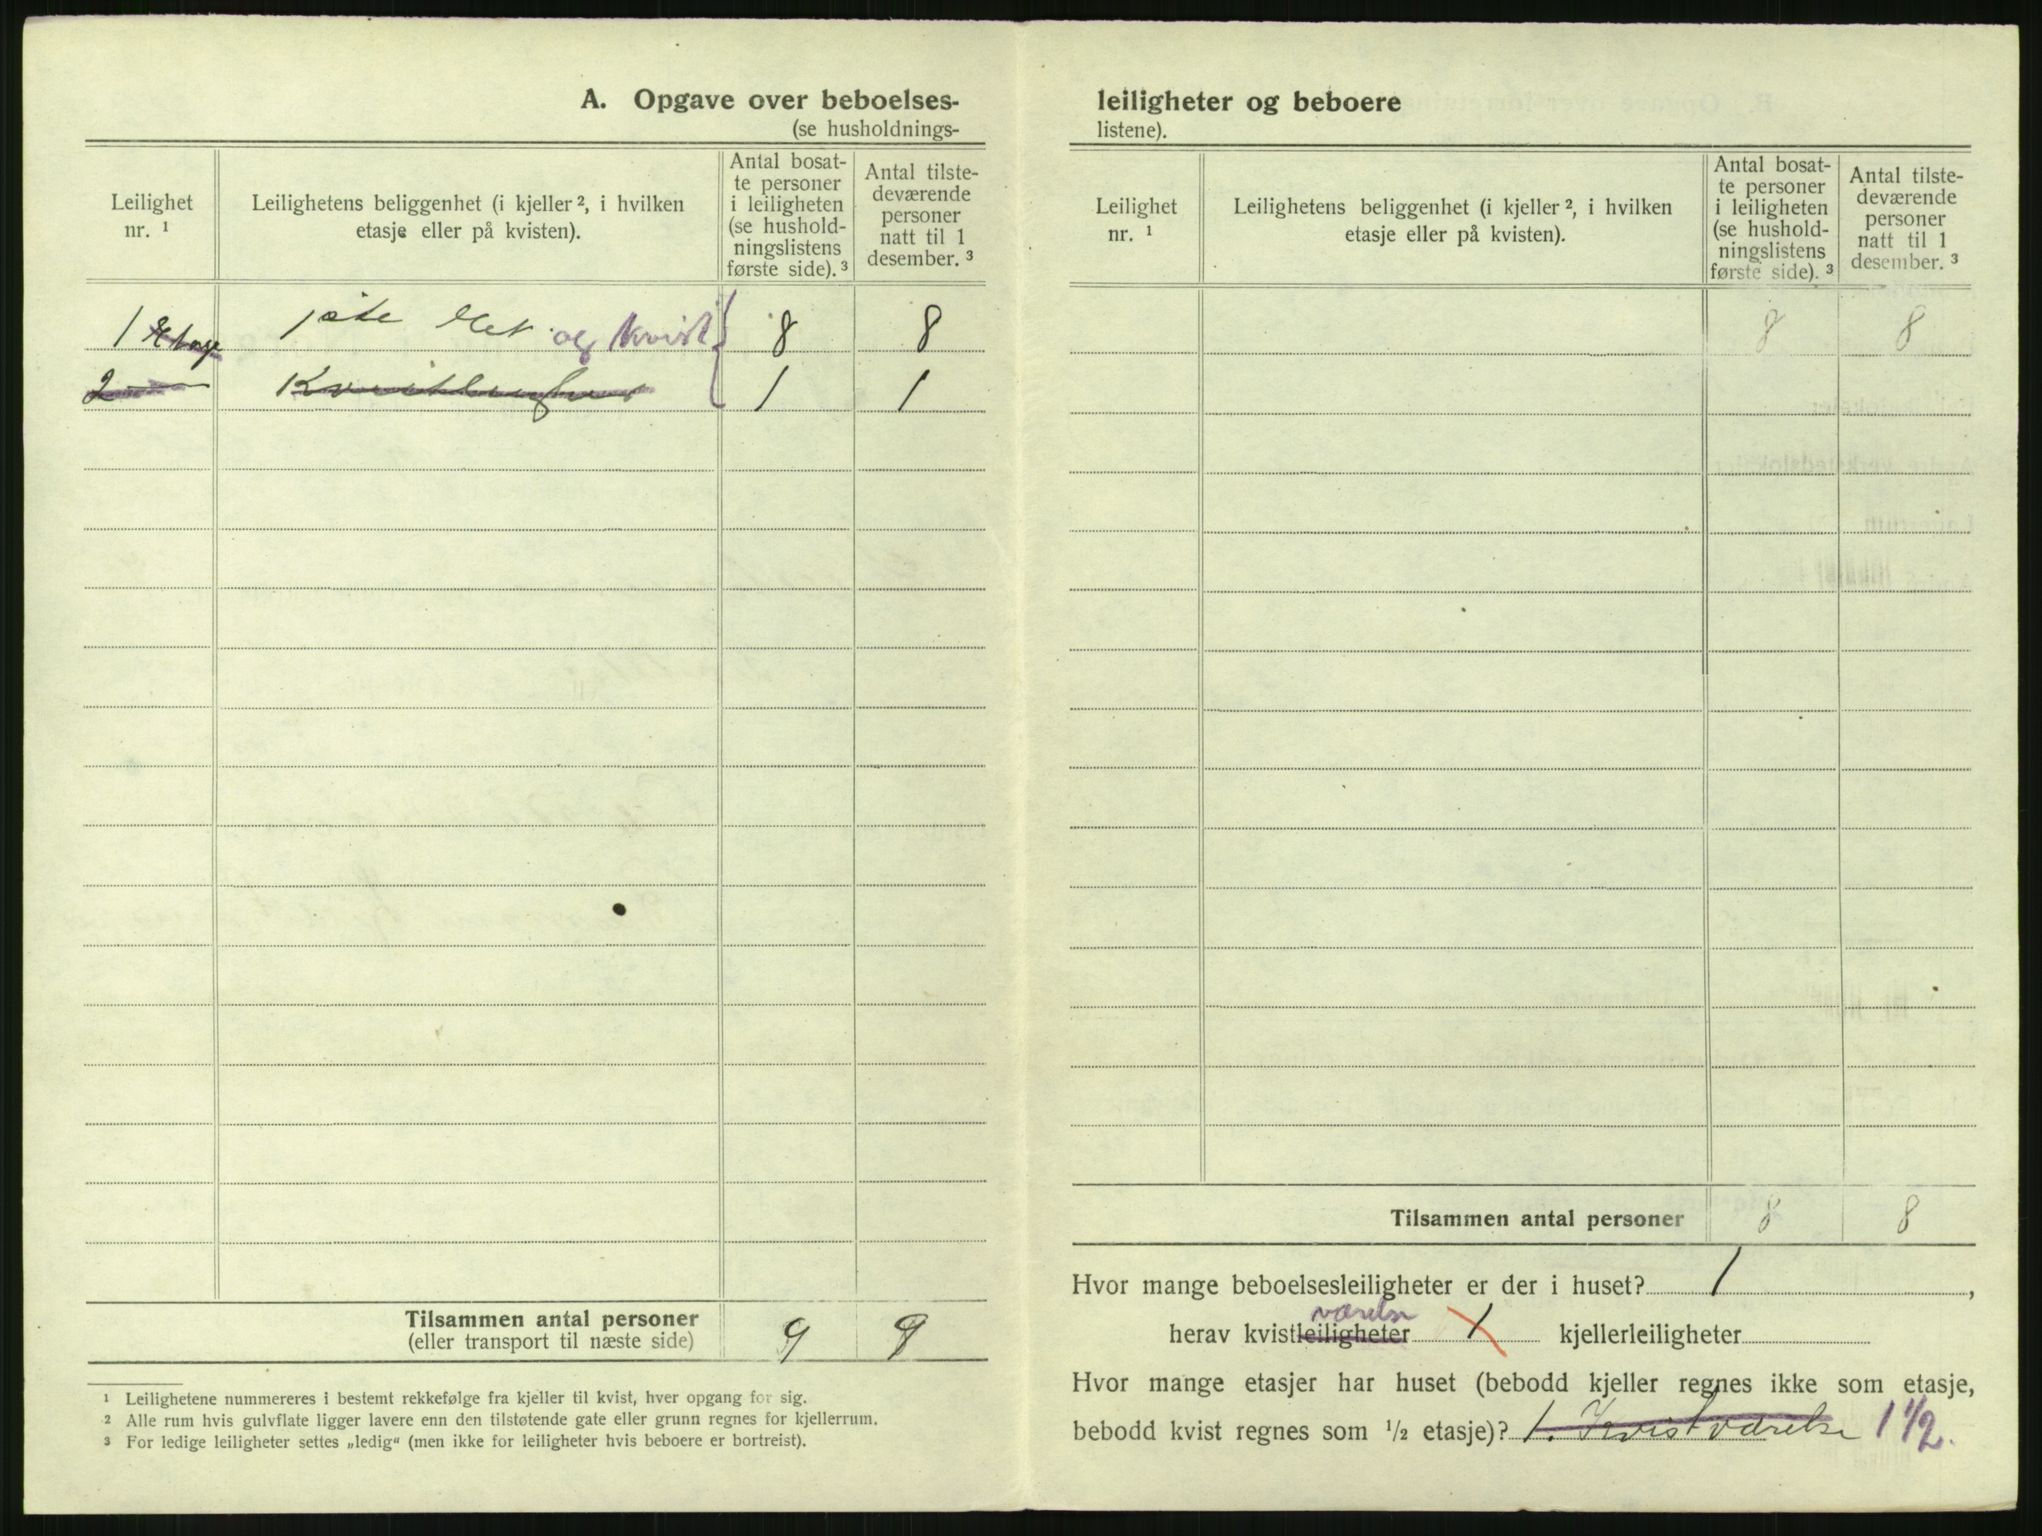 A. Opgave over beboelses-
(se husholdnings-
Leilighet
nr. ¹
Leilighetens beliggenhet (i kjeller ², i hvilken
etasje eller på kvisten).
Antal bosat-
te personer
i leiligheten
(se hushold-
ningslistens
første side). ³
Antal tilste-
deværende
personer
natt til 1
desember. ³
1 Etage 1ste Et. og kvist 8 8
2 1 1
Tilsammen antal personer
(eller transport til næste side) 9 9
¹ Leilighetene nummereres i bestemt rekkefølge fra kjeller til kvist, hver opgang for sig.
² Alle rum hvis gulvflate ligger lavere enn den tilstøtende gate eller grunn regnes for kjellerrum.
³ For ledige leiligheter settes „ledig“ (men ikke for leiligheter hvis beboere er bortreist).
leiligheter og beboere
listene).
Leilighet
nr. ¹
Leilighetens beliggenhet (i kjeller ², i hvilken
etasje eller på kvisten).
Antal bosat-
te personer
i leiligheten
(se hushold-
ningslistens
første side). ³
Antal tilste-
deværende
personer
natt til 1
desember. ³
8 8
Tilsammen antal personer 8 8
Hvor mange beboelsesleiligheter er der i huset? 1,
værelse
herav kvistleiligheter 1 kjellerleiligheter
Hvor mange etasjer har huset (bebodd kjeller regnes ikke som etasje,
bebodd kvist regnes som ½ etasje)? 1. Kvistværelse 1 ½.